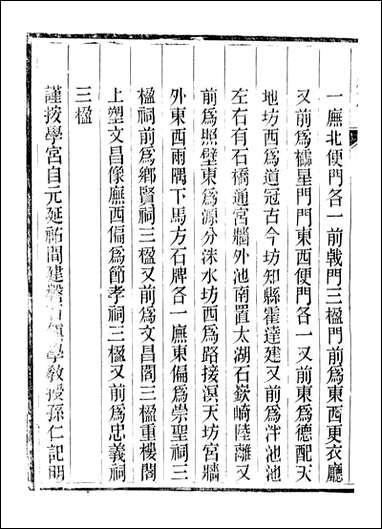 一廡北便門各一前戟門三楹門前爲東西更衣廳
又前爲櫺星門門東西便門各一又前東爲德配天
地坊西爲道冠古今坊知縣霍達建又前爲泮池池
左右有石橋通宮牆外池南置太湖石嶔崎陸離又
前爲照壁東爲源分洙水坊西爲路接溟天坊宮牆
外東西兩隅下馬方石牌各一廡東偏爲崇聖祠三
楹祠前爲鄉賢祠三楹又前爲文昌閣三楹重樓閣
上塑文昌像廡西偏爲節孝祠三楹又前爲忠義祠
三楹
謹按學宮自元延祐間建學教授孫仁記明